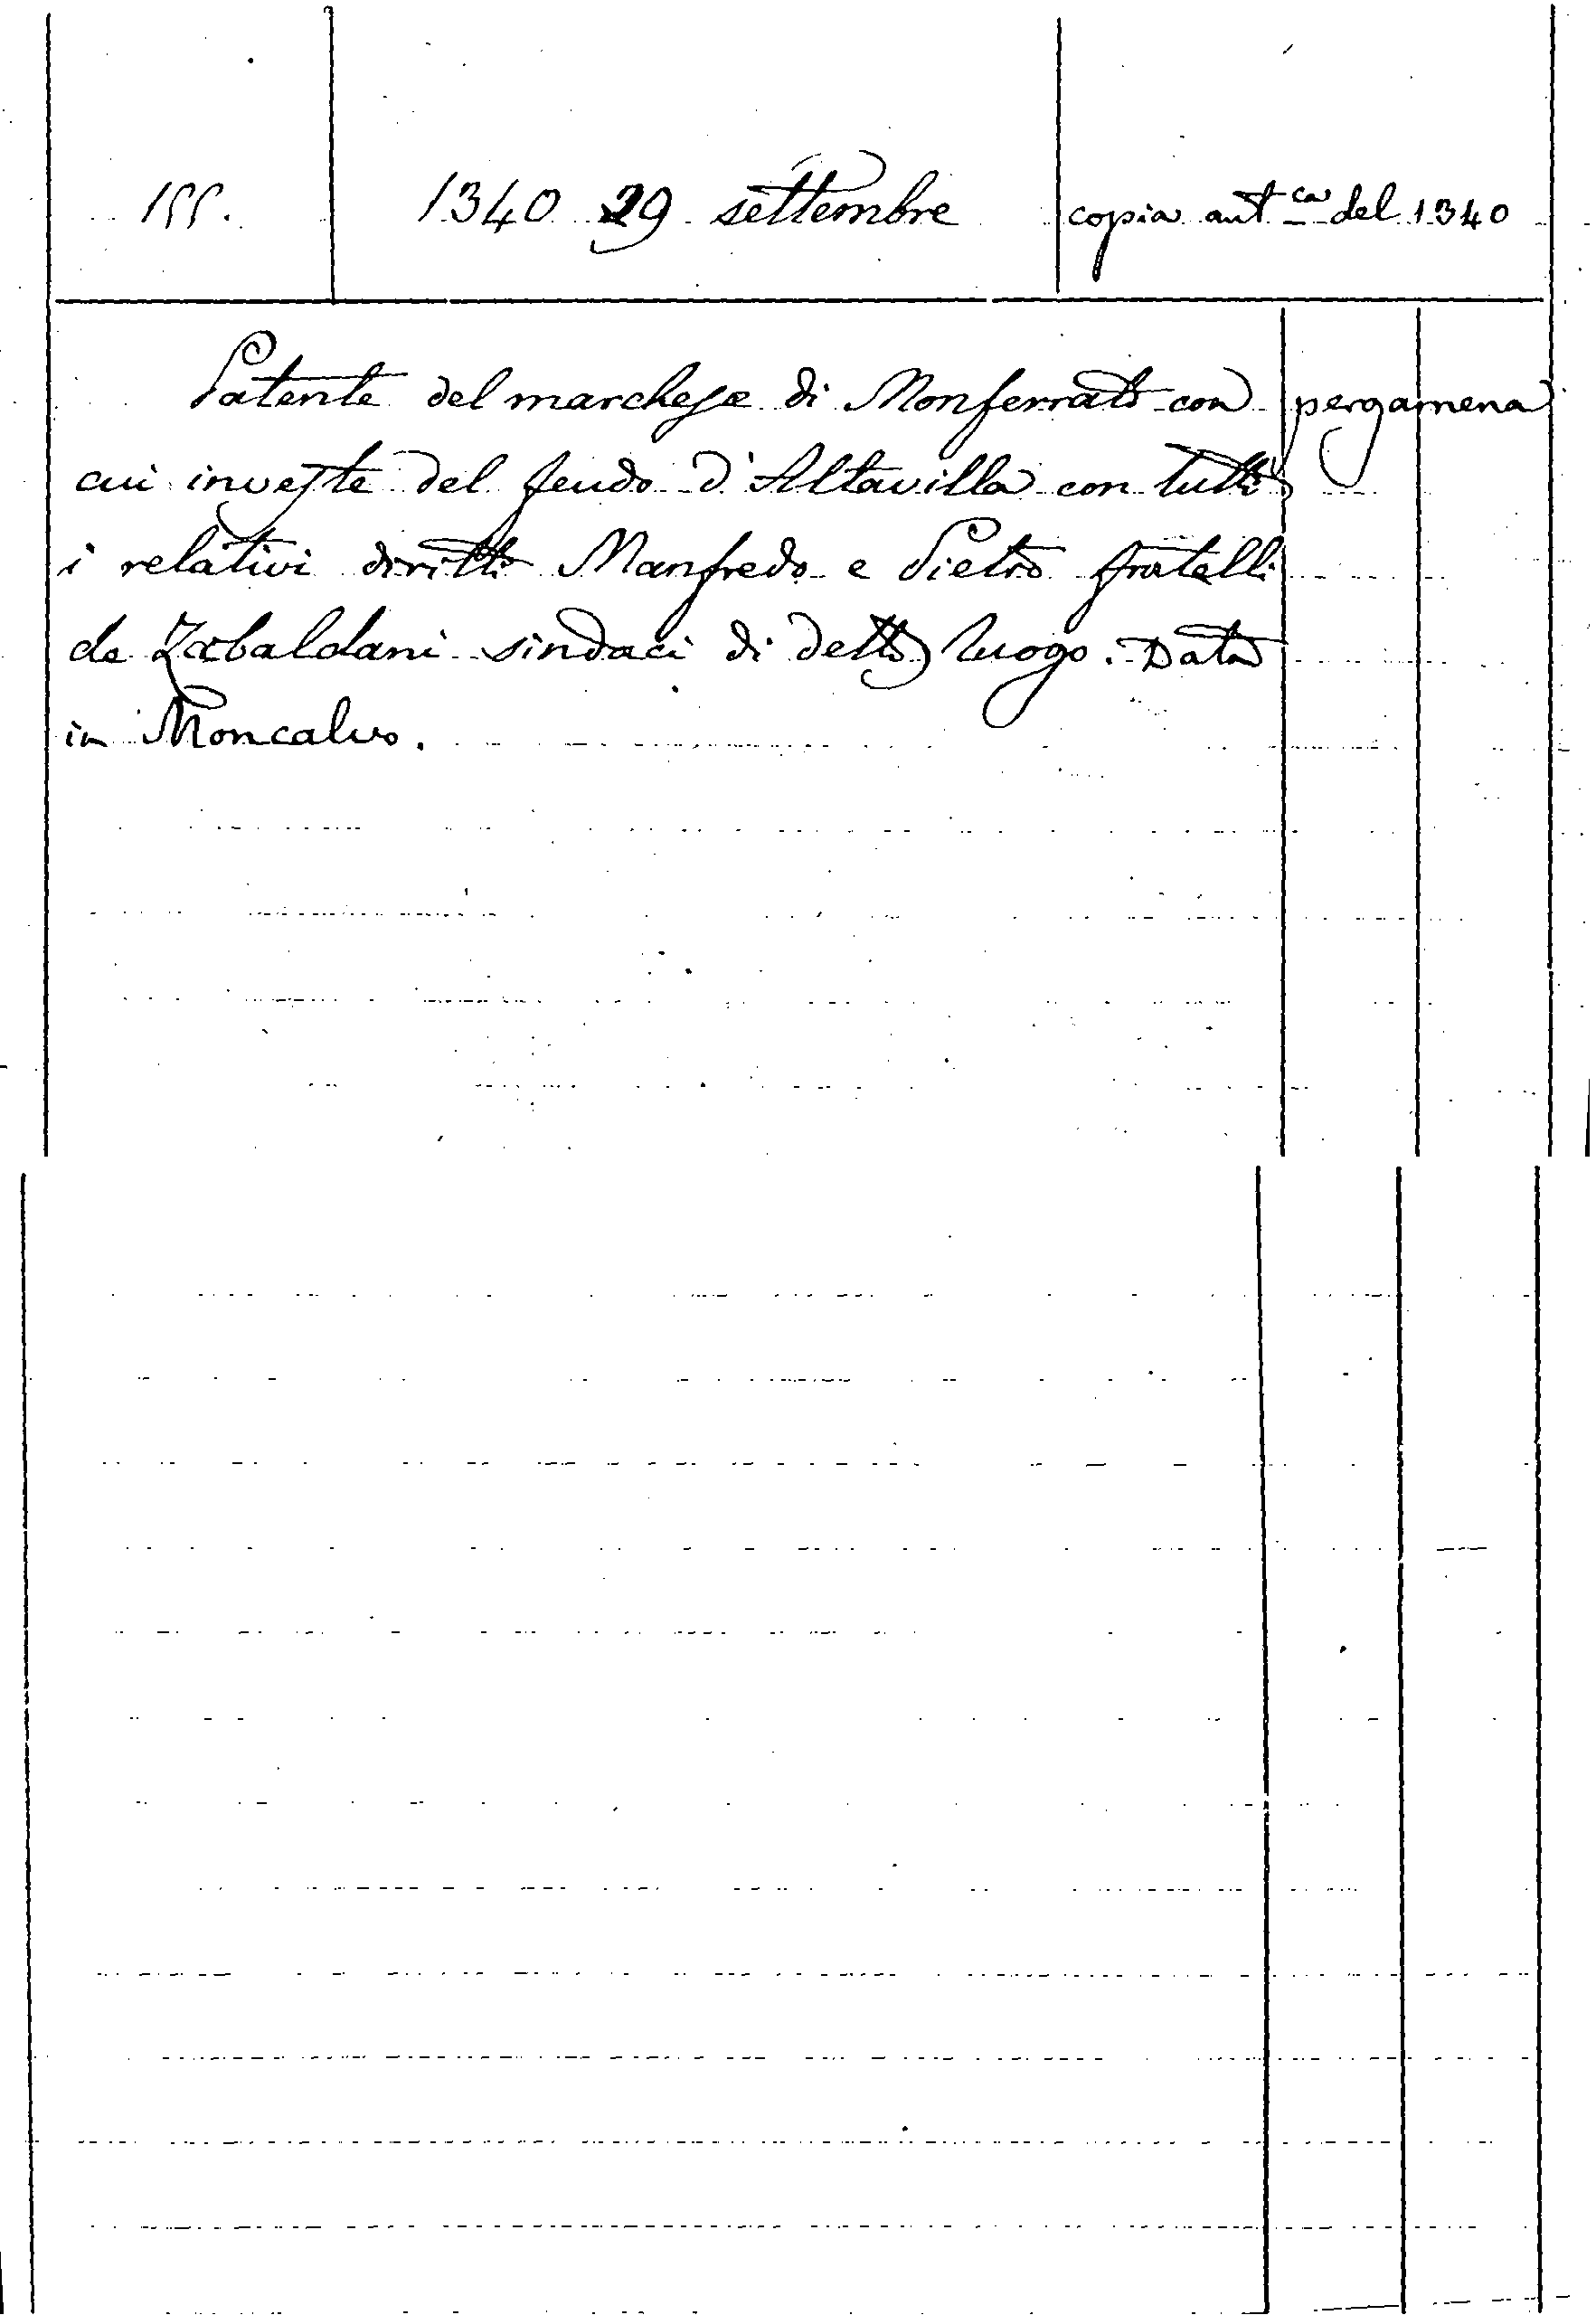 155. 1340 29 settembre copia aut.ca del 1340
Patente del marchese di Monferrato con pergamena
cui investe del feudo d'Altavilla con tutti
i relativi diritti Manfredo e Pietro fratelli
de sindaci di detto luogo. Data
in Moncalvo.